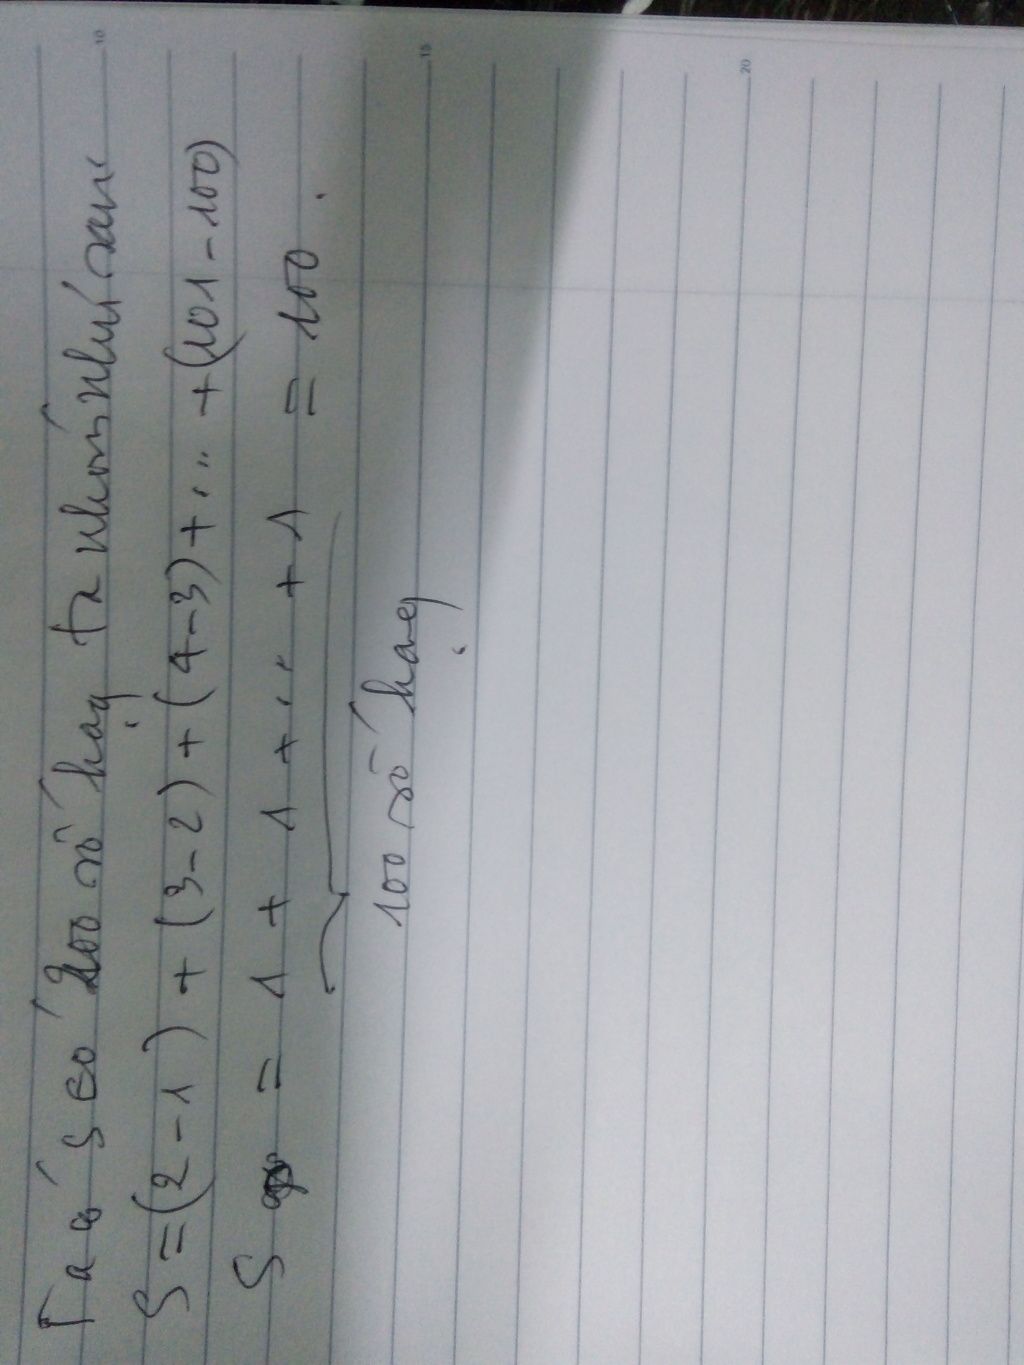 Ta có S có 200 số hạng ta nhóm như sau
S = (2 - 1) + (3 - 2) + (4 - 3) + ... + (101 - 100)
S = 1 + 1 + 1 + ... + 1 = 100.
100 số hạng
10
15
20